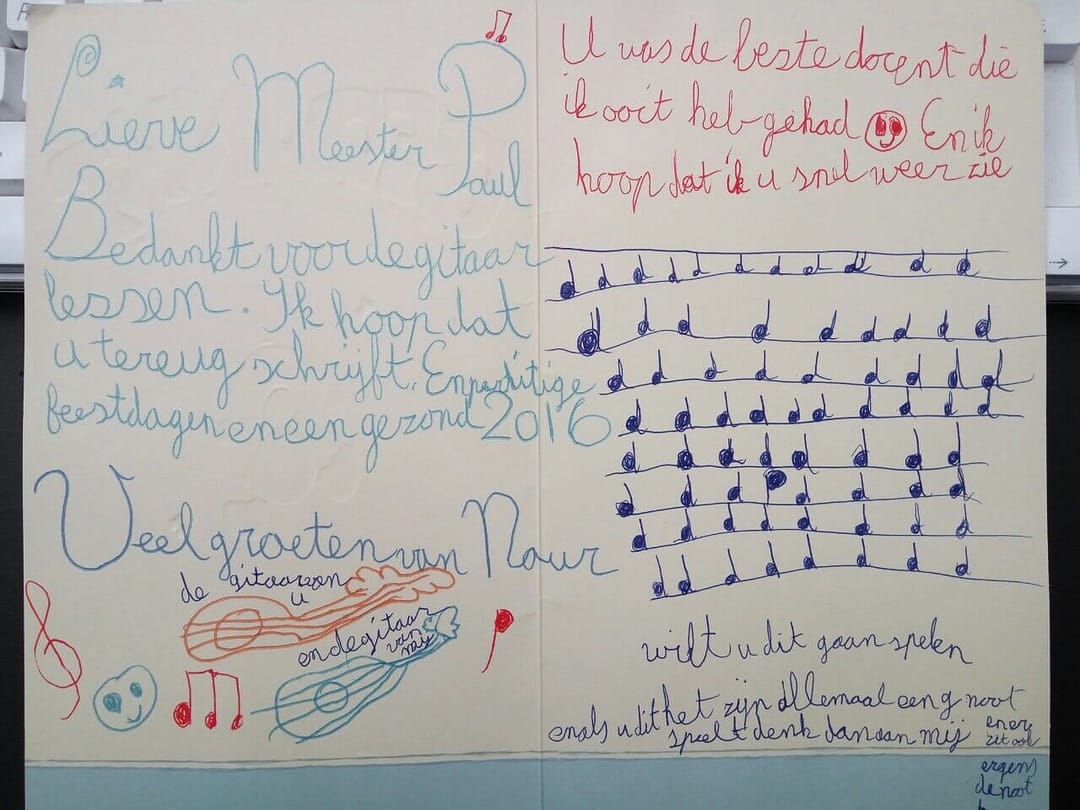 Lieve Meester Paul
Bedankt voor de gitaar
lessen. Ik hoop dat
u tereug schrijft. En prettige
feestdagen en een gezond 2016
Veel groeten van Nour
de gitaar van
u
en de gitaar
van
mij
U was de beste docent die
ik ooit heb gehad En ik
hoop dat ik u snel weer zie
wilt u dit gaan spelen
het zijn allemaal een g noot
en als u dit speelt denk dan aan mij
en er
zit ook
ergens
de noot